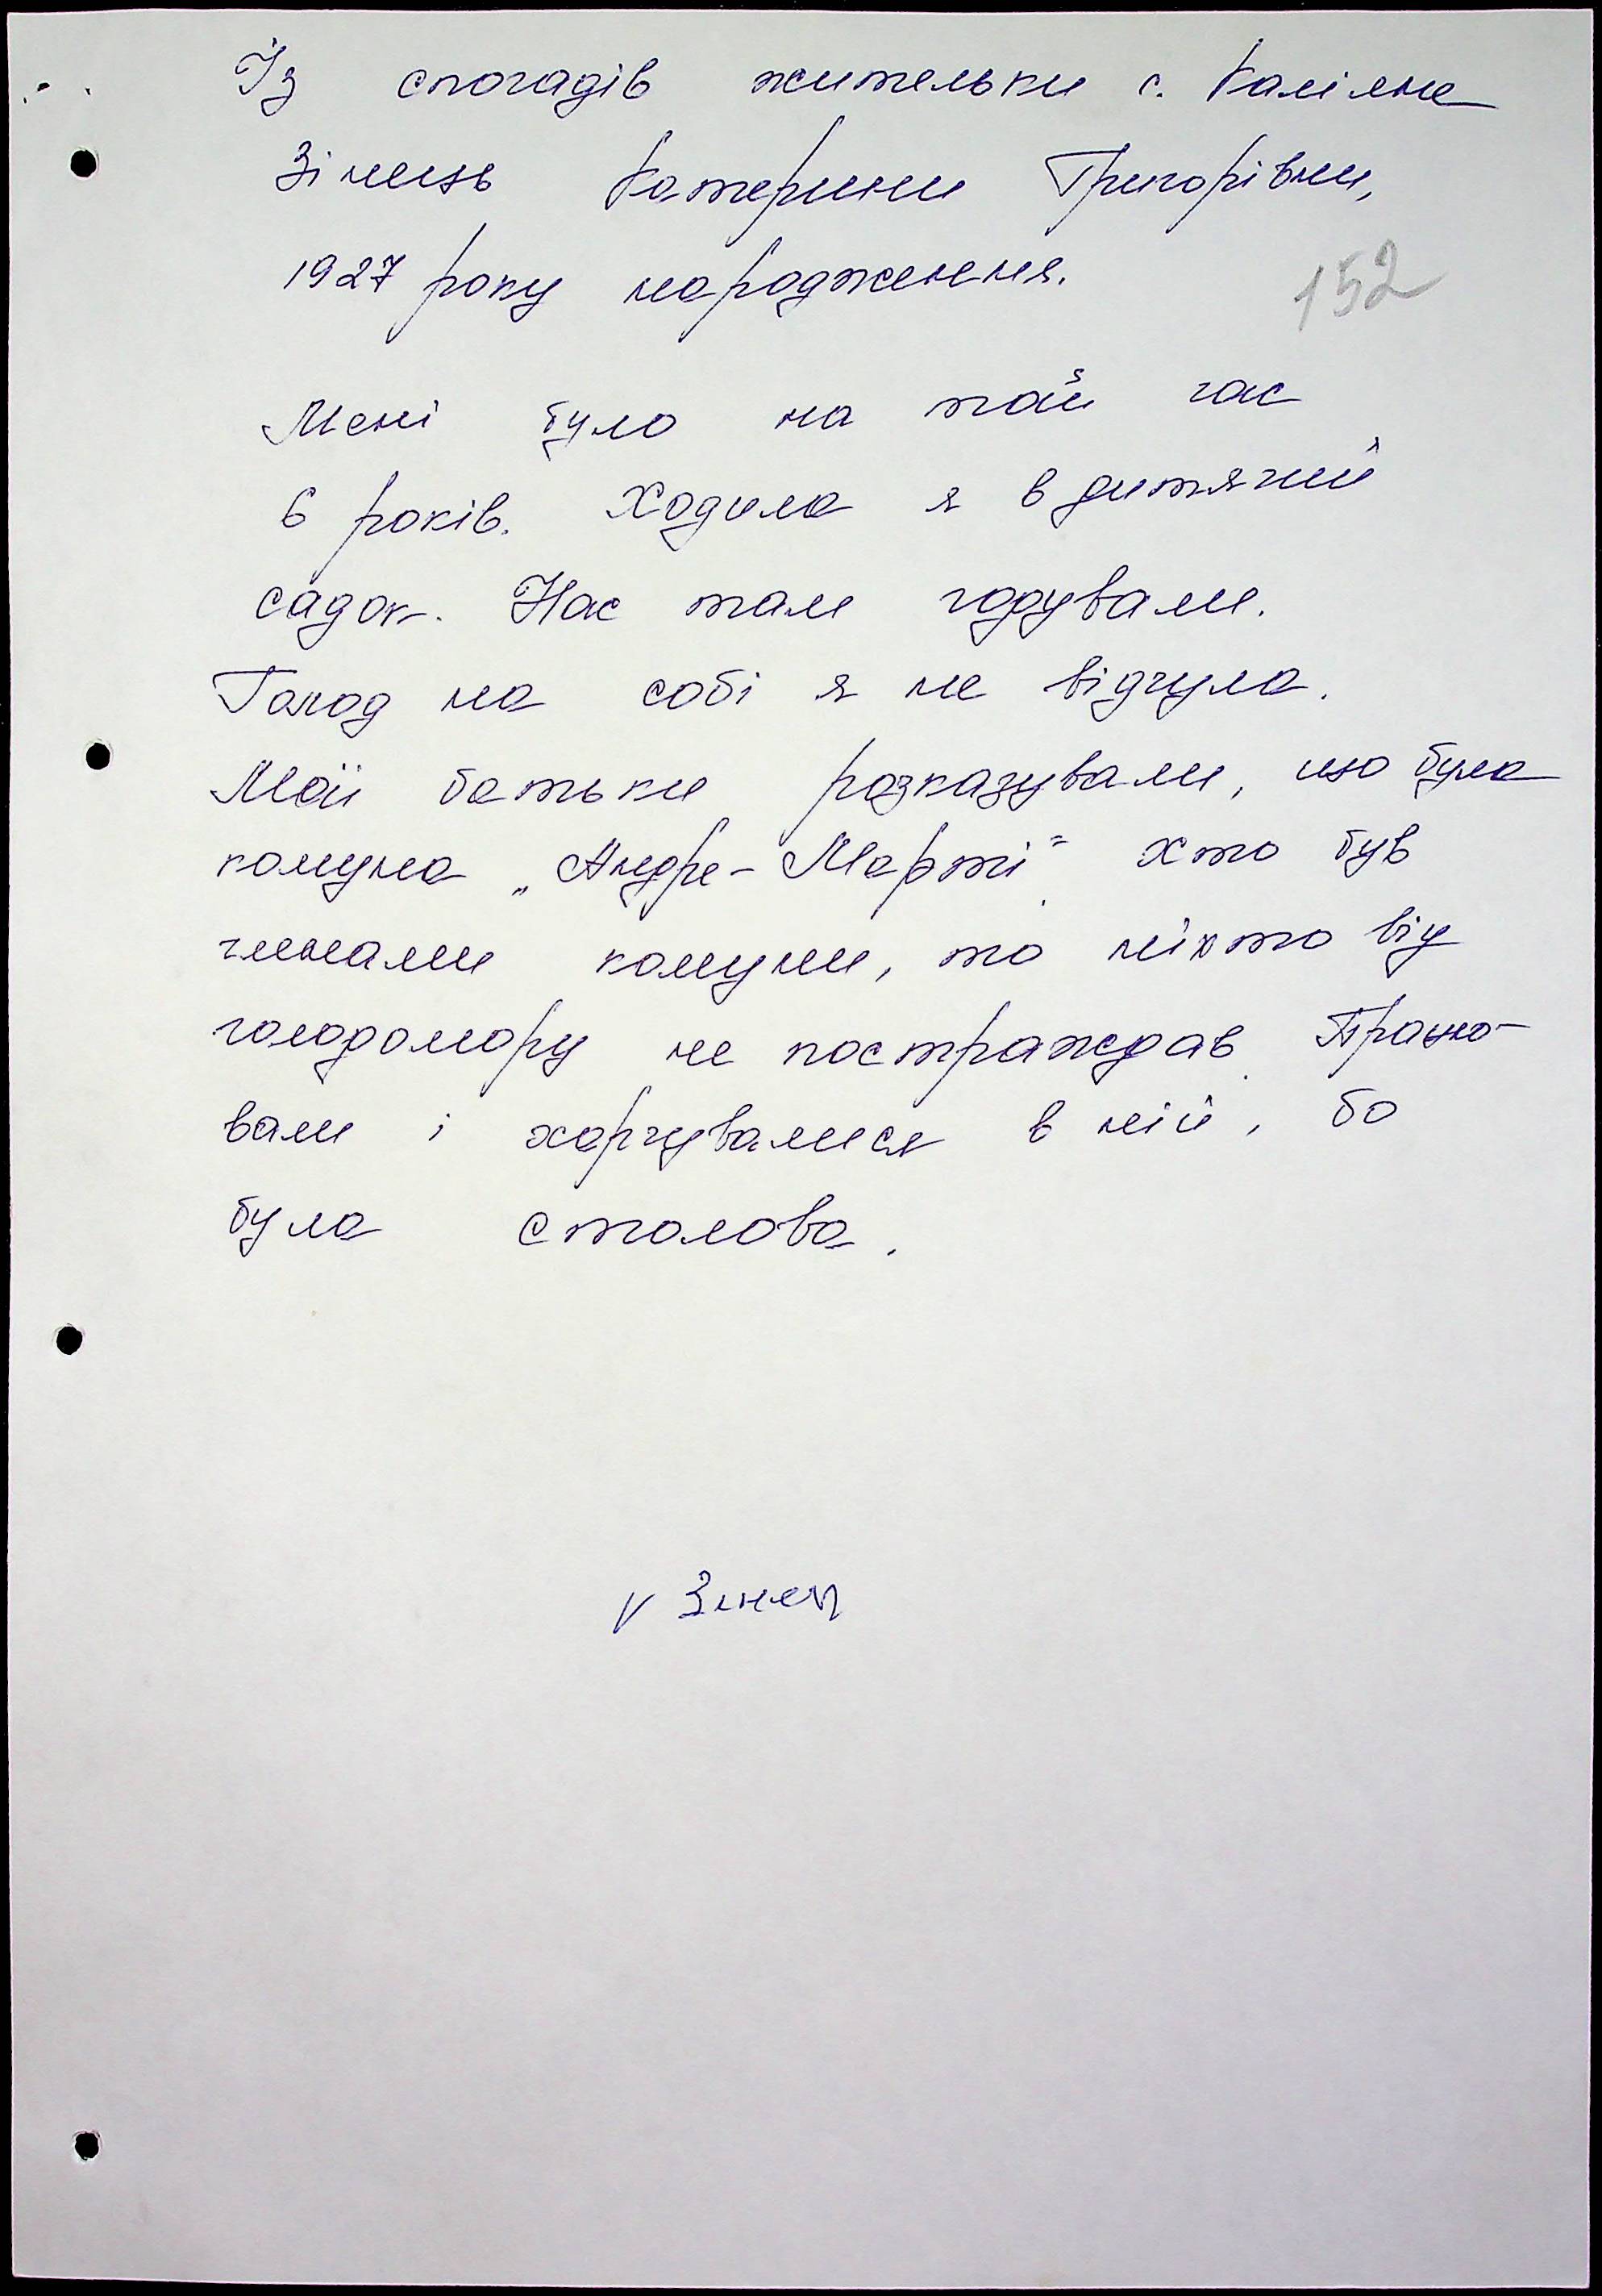 Із спогадів жительки с. Каліяне
Зінець Катерини Григорівни,
1927 року народження.
152
Мені було на той час
6 років. Ходила я в дитячий
садок. Нас там годували.
Голод на собі я не відчула.
Мої батьки розказували, що була
комуна „Андре-Марті". хто був
членами комуни, то ніхто від
голодомору не постраждав. Працю-
вали і харчувалися в ній, бо
була столова.
Зінец